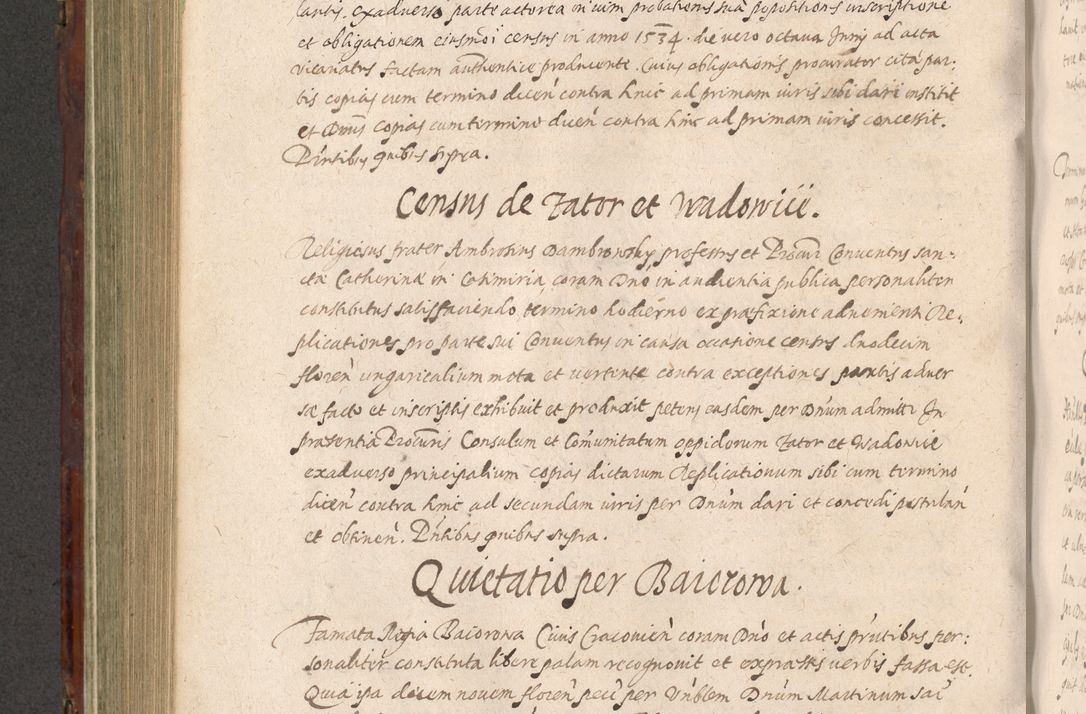 lantis. Exadverso parte actorea in vim probationis suæ propositionis inscriptione
et obligationem eiusmoi census in anno 1534. die vero octava Junij ad acta
vicariatus factam authentice producente. Cuius obligationis procurator citæ par=
tis copias cum termino dicen̄ contra hinc ad primam iuris sibi dari institit
et Dnūs copias cum termino dicen̄ contra hinc ad primam iuris concessit.
Pn̄tibus quibus supra.
Census de Zator et Wadowicii.
Religiosus frater Ambrosius Dambrowsky professus et Procur̄ Conventus san=
ctæ Catherinæ in Casimiria coram Dn̄o in audientia publica personaliter
constitutus satisfaciendo termino hodierno ex præfixione advenienti Re=
plicationes pro parte sui Conventus in causa occasione census duodecim
floren̄ ungaricalium mota et vertente contra exceptiones partis adver
sæ facto et inscriptis exhibuit et produxit petens easdem per Dn̄um admitti In
præsentia Procur̄is Consulum et Com̄unitatum oppidorum Zator et Wadowice
ex adverso principalium copias dictarum Replicationum sibi cum termino
dicen̄ contra hinc ad secundam iuris per Dn̄um dari et concedi postulan̄
et obtinen̄. Pn̄tibus quibus supra.
Quietatio per Baiorowa.
Famata Regia Baiorowa Civis Cracovien̄ coram Dn̄o et actis pn̄tibus per=
sonaliter constituta libere palam recognovit et expressis verbis fassa est
Quia ipsa decem novem floren̄ pecu̅ per Vn̄blem Dn̄um Martinum